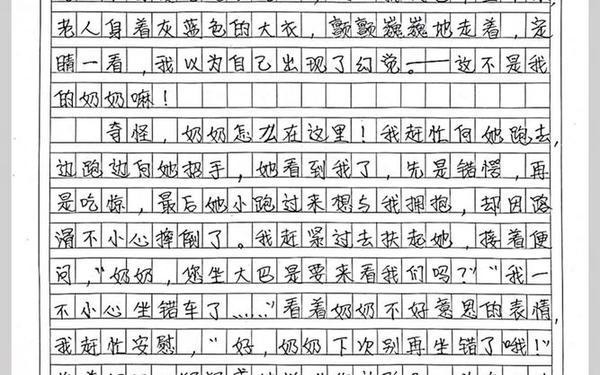 老人身着灰蓝色的大衣，颤颤巍巍地走着，定
睛一看，我以为自己出现了幻觉。——这不是我
的奶奶嘛！
奇怪，奶奶怎么在这里！我赶忙向她跑去，
边跑边向她招手，她看到我了，先是错愕，再
是吃惊，最后她小跑过来想与我拥抱，却因路
滑不小心摔倒了。我赶紧过去扶起她，接着便
问，“奶奶，您坐大巴是要来看我们吗？”“我一
不小心坐错车了……”看着奶奶不好意思的表情，
我赶忙安慰，“好，奶奶下次别再坐错了哦！”